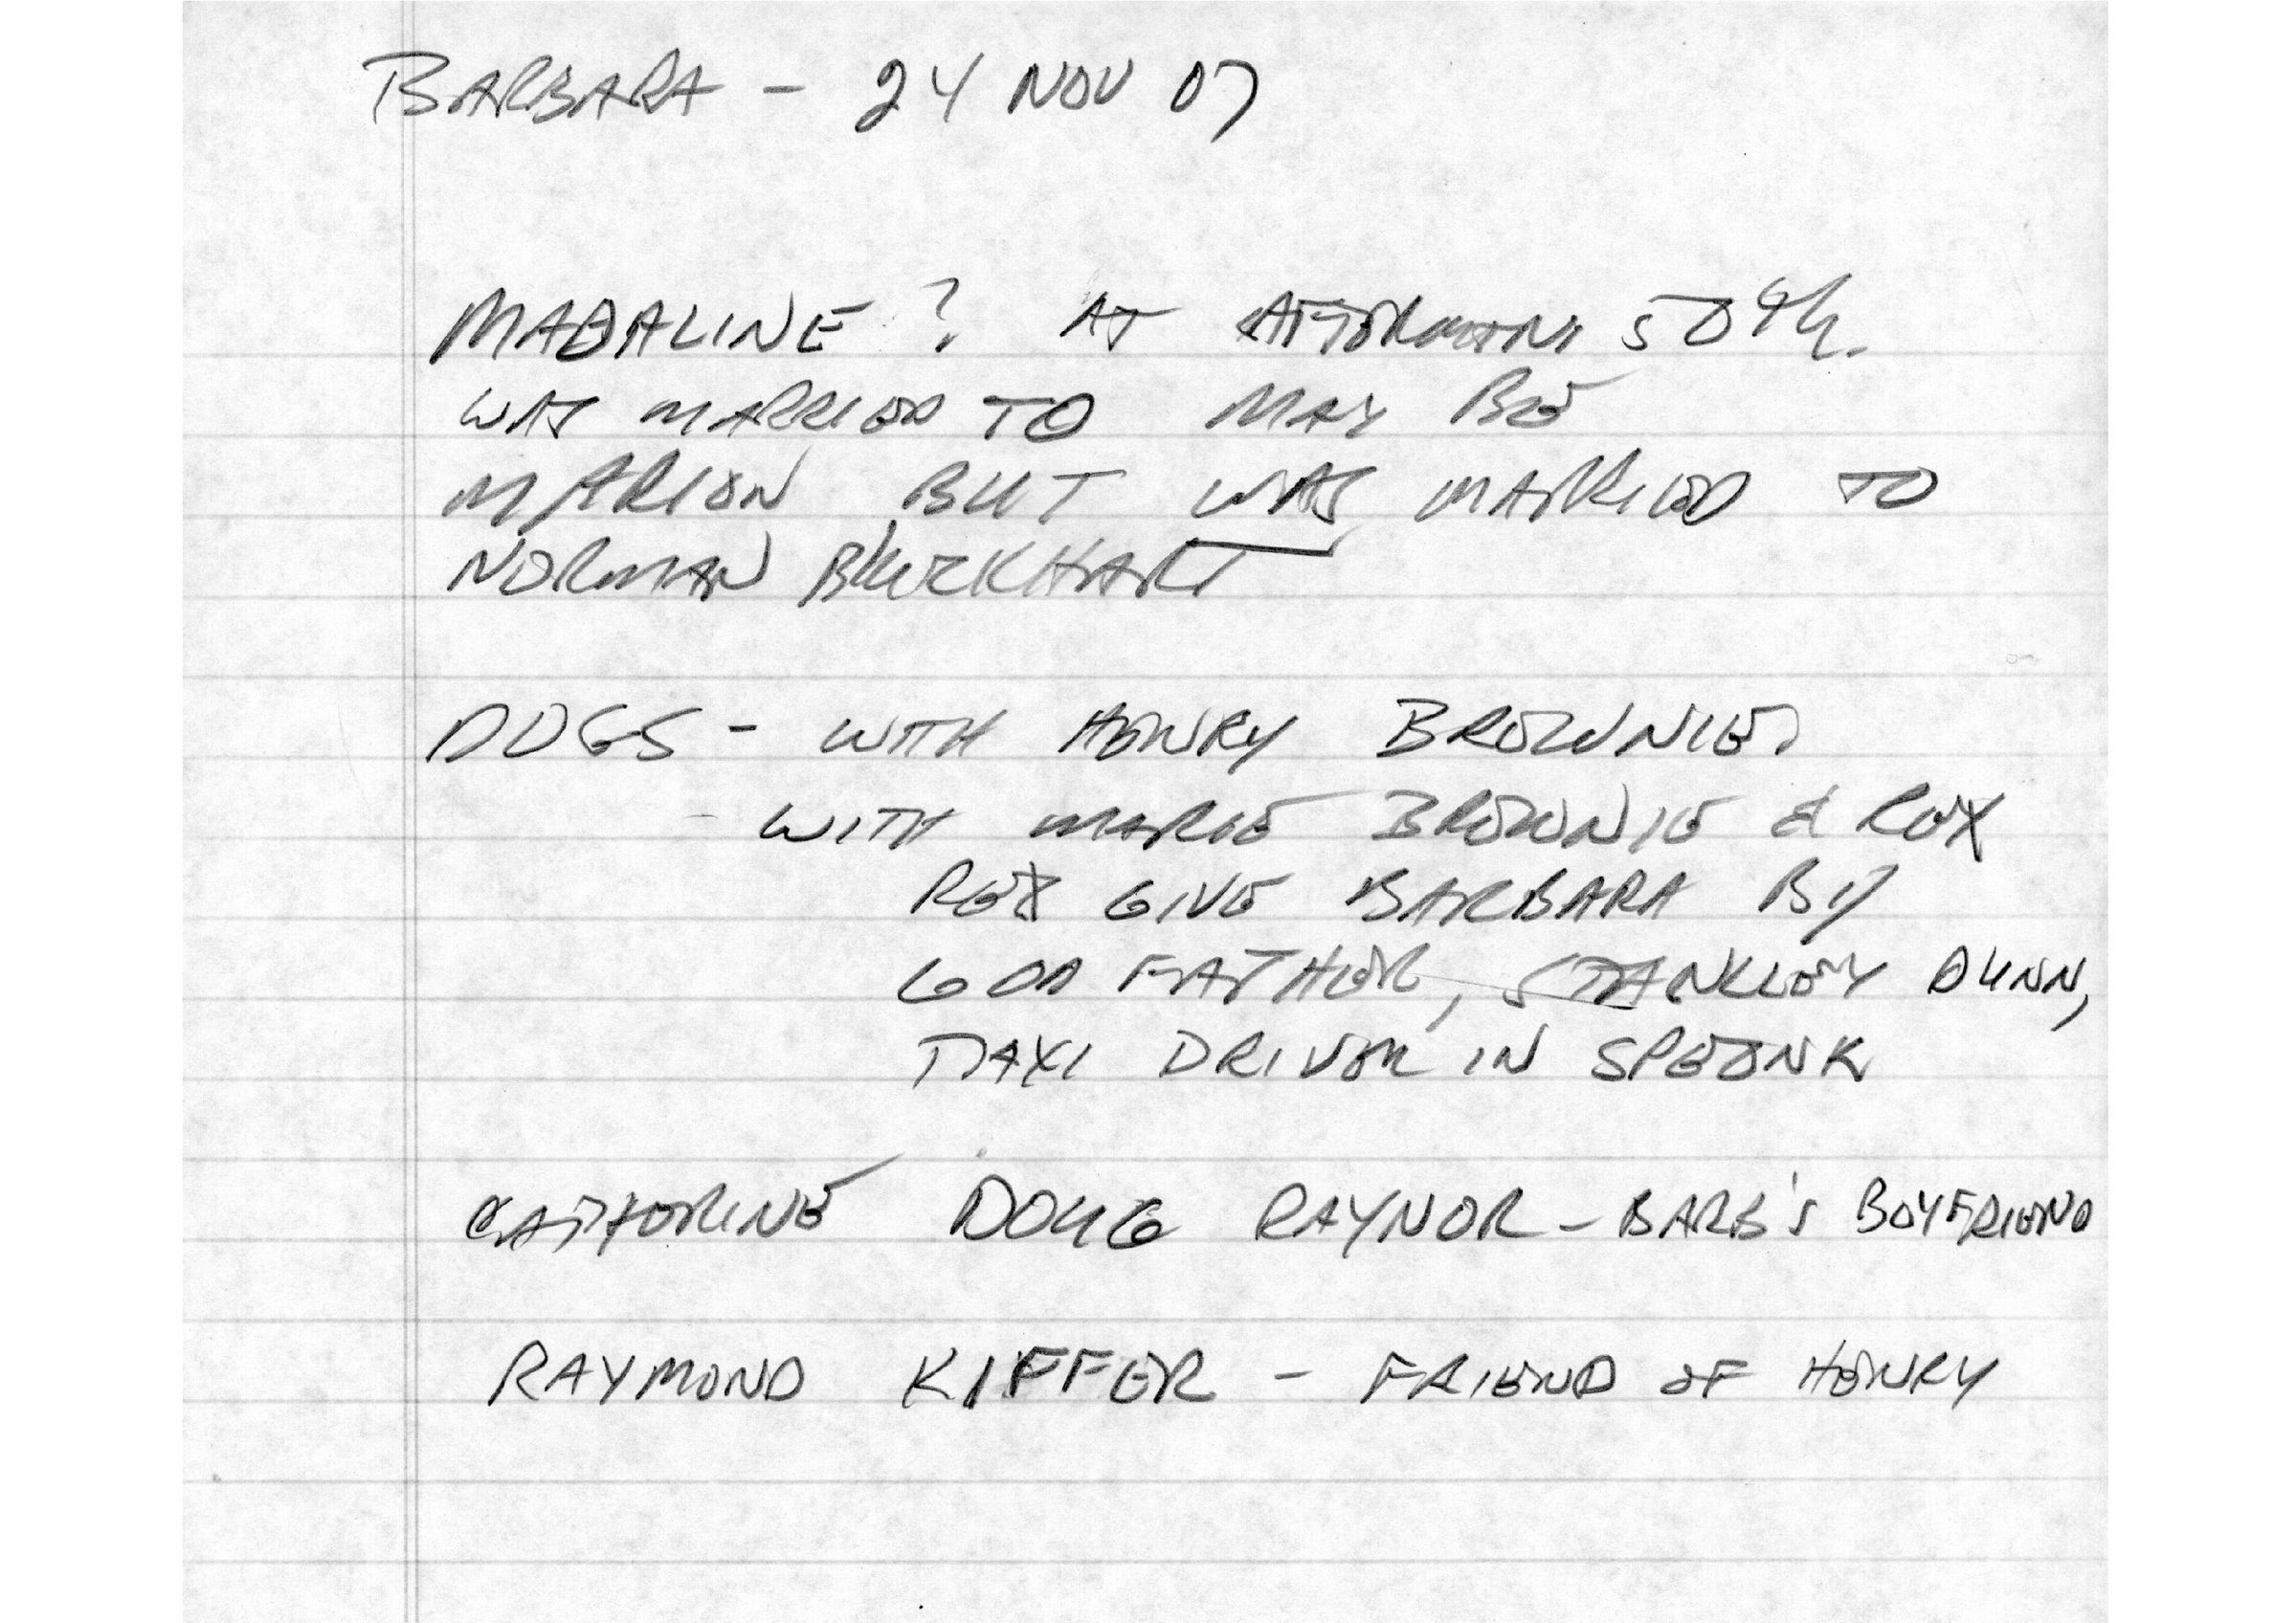 BARBARA - 24 NOV 07
MADALINE ? AT 50th.
WAS MARRIED TO MAY BE
MARION BUT WAS MARRIED TO
NORMAN BURKHART
DOGS - WITH HENRY BROWNIE
- WITH MARIE BROWNIE & REX
REX GIVE BARBARA BY
GOD FATHER, STANLEY DUNN,
TAXI DRIVER IN SPEONK
CATHERINE DOUG RAYNOR - BARB'S BOYFRIEND
RAYMOND KIFFER - FRIEND OF HENRY